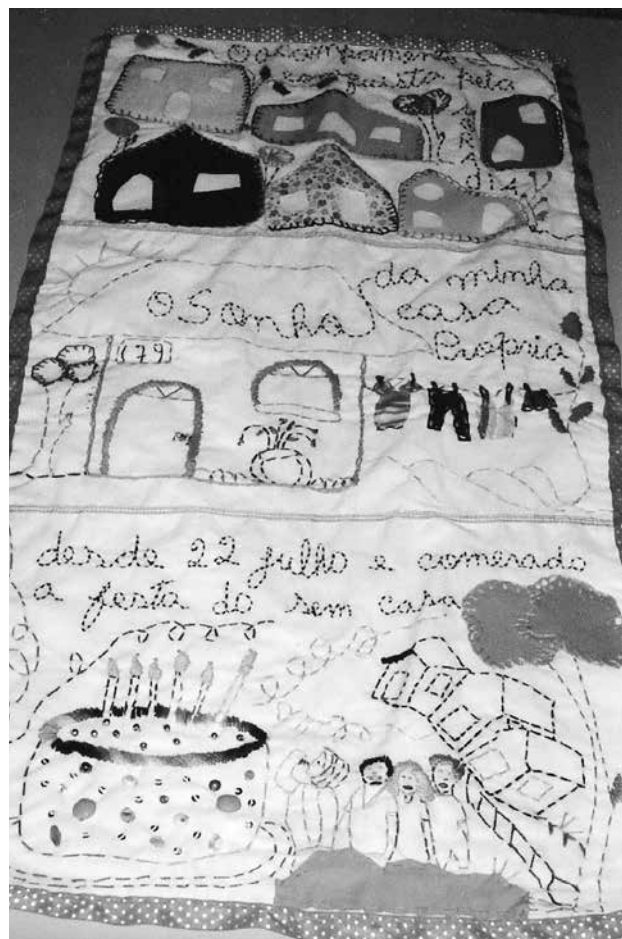 O acampament
conquista pela
O Sonho
da minha
casa
Propria
179
desde 22 julho e comerado
a festa do sem casa